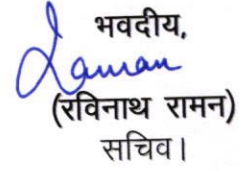 भवदीय,
Raman
(रविनाथ रामन)
सचिव।